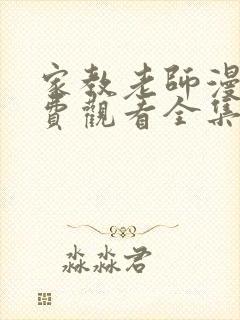 家教老師漫
費觀看全集
淼淼君